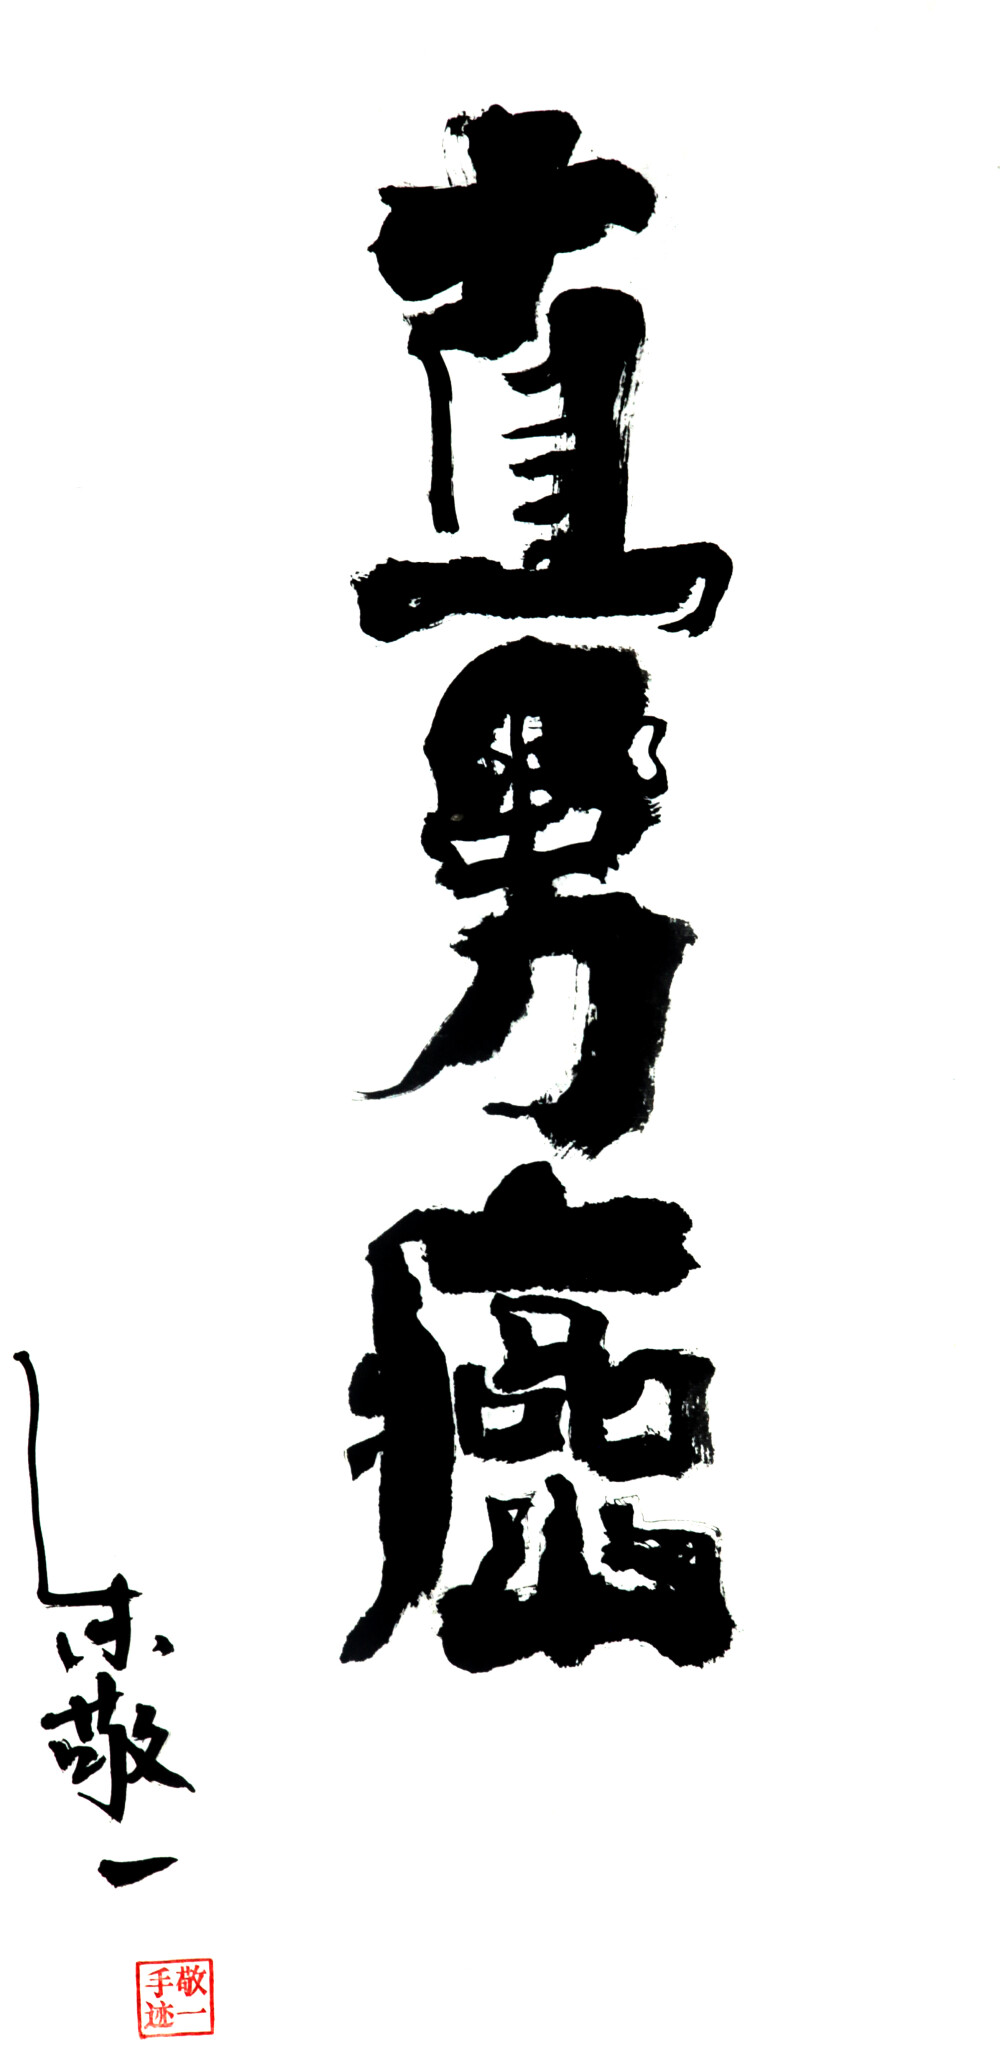 直男癌
朱敬一
敬一
手迹